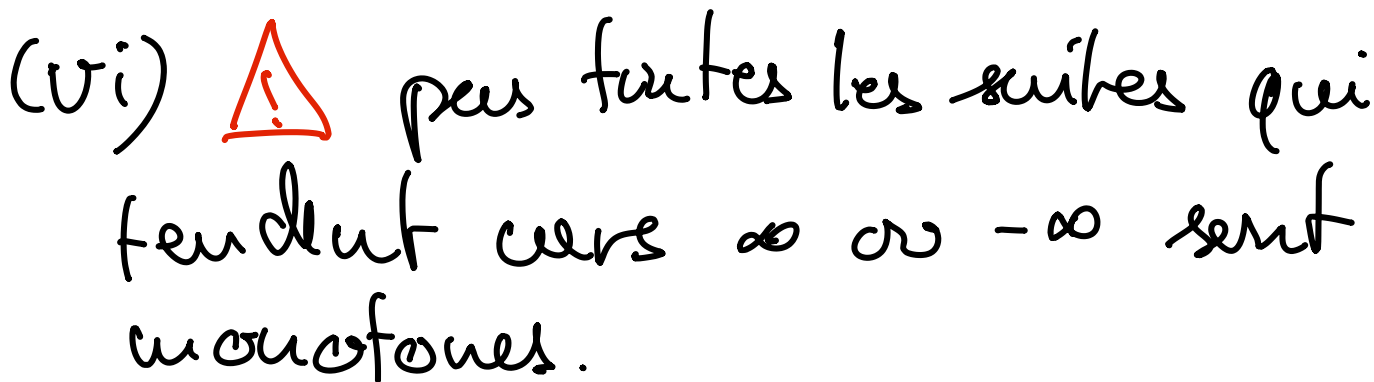 (vi) ⚠ pas toutes les suites qui
tendent vers ∞ ou -∞ sont
monotones.